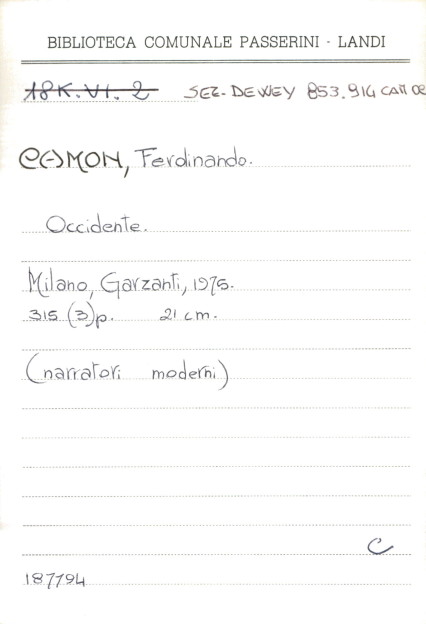 BIBLIOTECA COMUNALE PASSERINI - LANDI
18K.VI.2 SEZ. DEWEY 853.914 CAM OC
CAMON, Ferdinando.
Occidente.
Milano, Garzanti, 1975.
315 (3)p. 21 cm.
(narratori moderni)
C
187194